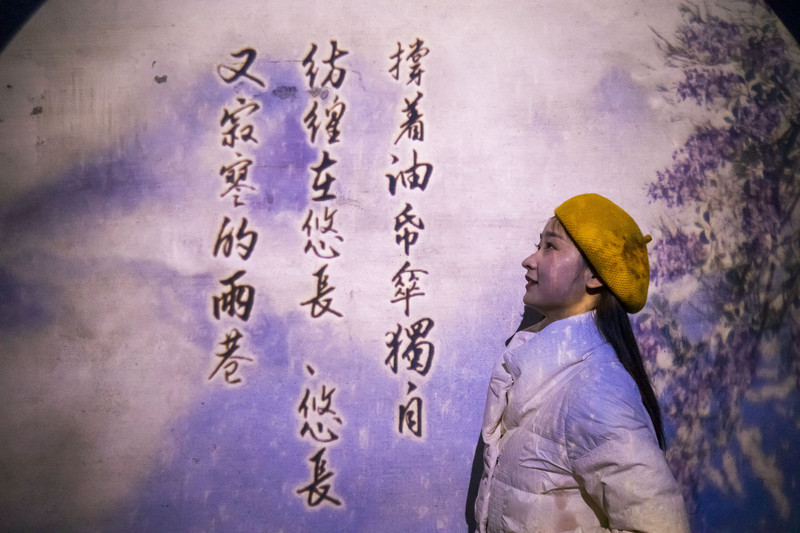 撐着油帋傘獨自
彷徨在悠長、悠長
又寂寥的雨巷